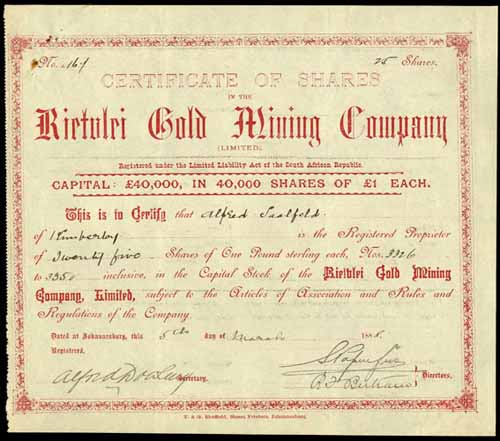 No. 164 25 Shares.
CERTIFICATE OF SHARES
IN THE
Rietvlei Gold Mining Company
(LIMITED).
Registered under the Limited Liability Act of the South African Republic.
CAPITAL: £40,000, IN 40,000 SHARES OF £1 EACH.
This is to Certify that Alfred Saalfeld.
of Kimberley is the Registered Proprietor
of Twenty five Shares of One Pound sterling each, Nos. 3326
to 3350 inclusive, in the Capital Stock of the Rietvlei Gold Mining
Company, Limited, subject to the Articles of Association and Rules and
Regulations of the Company.
Dated at Johannesburg, this 5th day of March 188
Registered.
Alfred Secretary.
Directors.